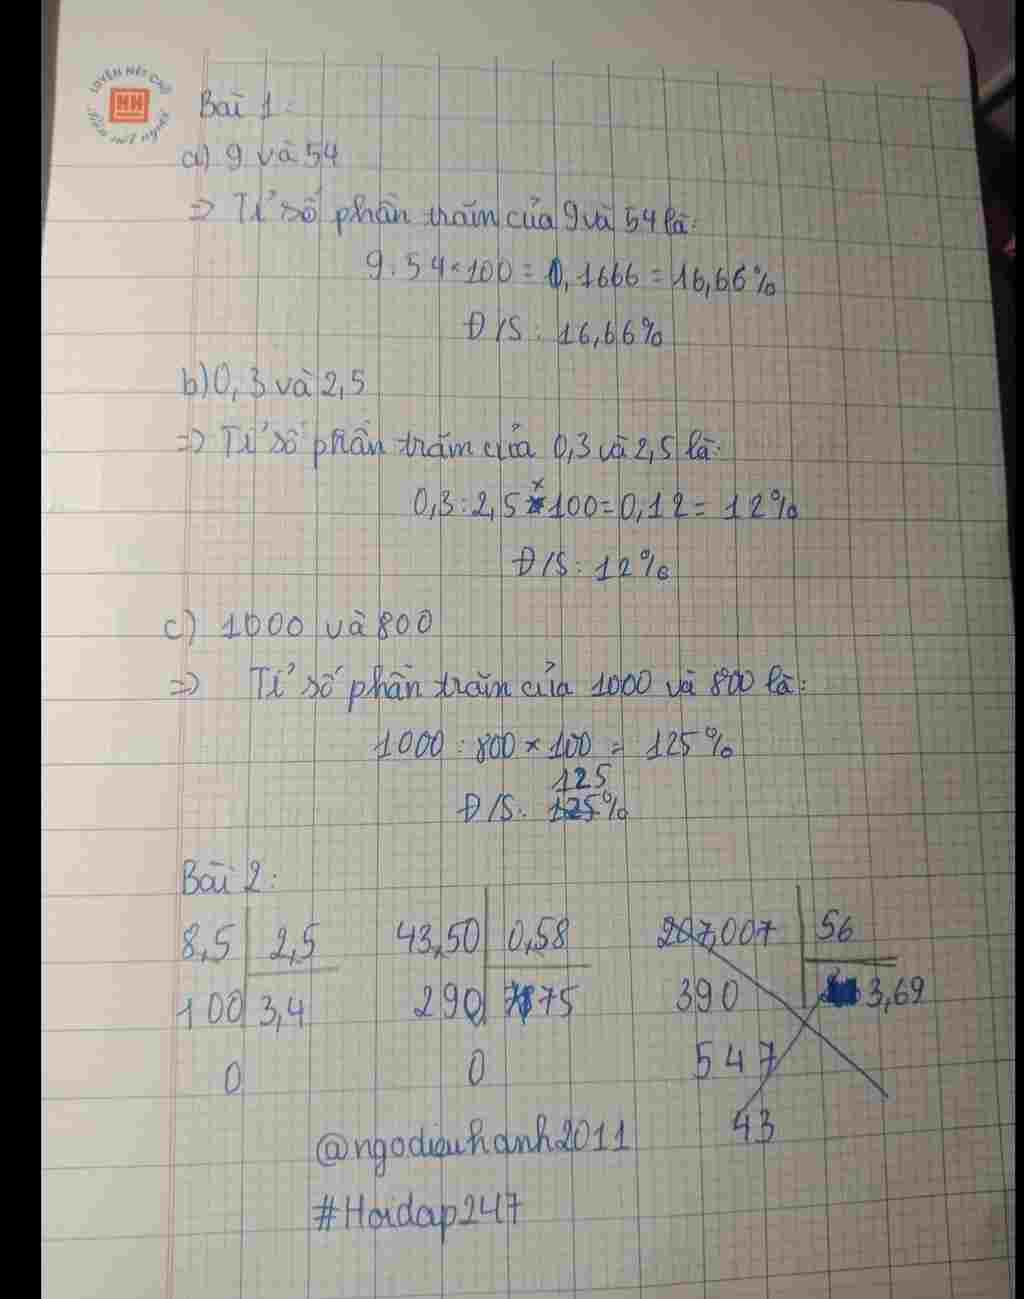 LUYỆN NÉT CHỮ
HH
Bài 1:
a) 9 và 54
=> Tỉ số phần trăm của 9 và 54 là:
9:54×100=0,1666=16,66%
Đ/S: 16,66%
b) 0,3 và 2,5
=> Tỉ số phần trăm của 0,3 và 2,5 là:
0,3:2,5×100=0,12=12%
Đ/S: 12%
c) 1000 và 800
=> Tỉ số phần trăm của 1000 và 800 là:
1000:800×100=125%
125
Đ/S: 125%
Bài 2:
8,5 2,5 43,50 0,58 207,007 56
100 3,4 290 75 390 3,69
0 0 547
43
@ngodieuhanh2011
#Hoidap247